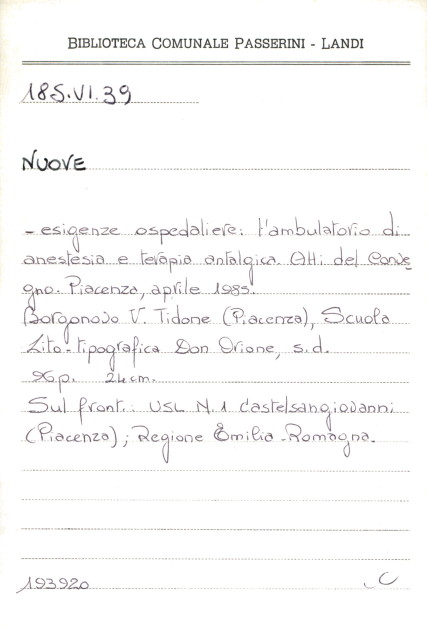 BIBLIOTECA COMUNALE PASSERINI - LANDI
185.VI.39
NUOVE
- esigenze ospedaliere: l'ambulatorio di
anestesia e terapia antalgica. Atti del Conve
gno. Piacenza, aprile 1985.
Borgonovo V. Tidone (Piacenza), Scuola
Lito-tipografica Don Orione, s.d.
96 p. 24 cm.
Sul front.: USL N.1 Castelsangiovanni
(Piacenza); Regione Emilia-Romagna.
193920
C